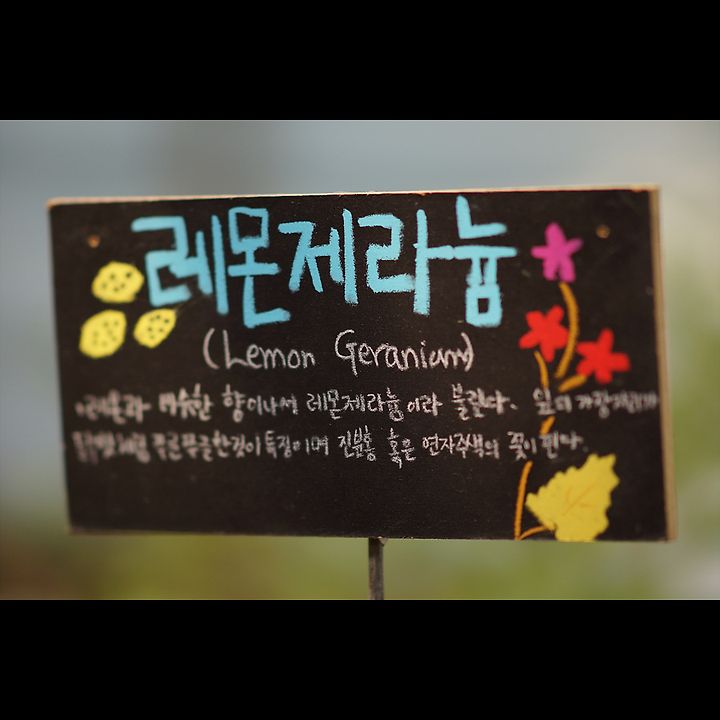 레몬제라늄
(Lemon Geranium)
•레몬과 비슷한 향이나서 레몬제라늄이라 불린다. 잎의 가장자리가
푸글푸글한것이 특징이며 진분홍 혹은 연자주색의 꽃이 핀다.